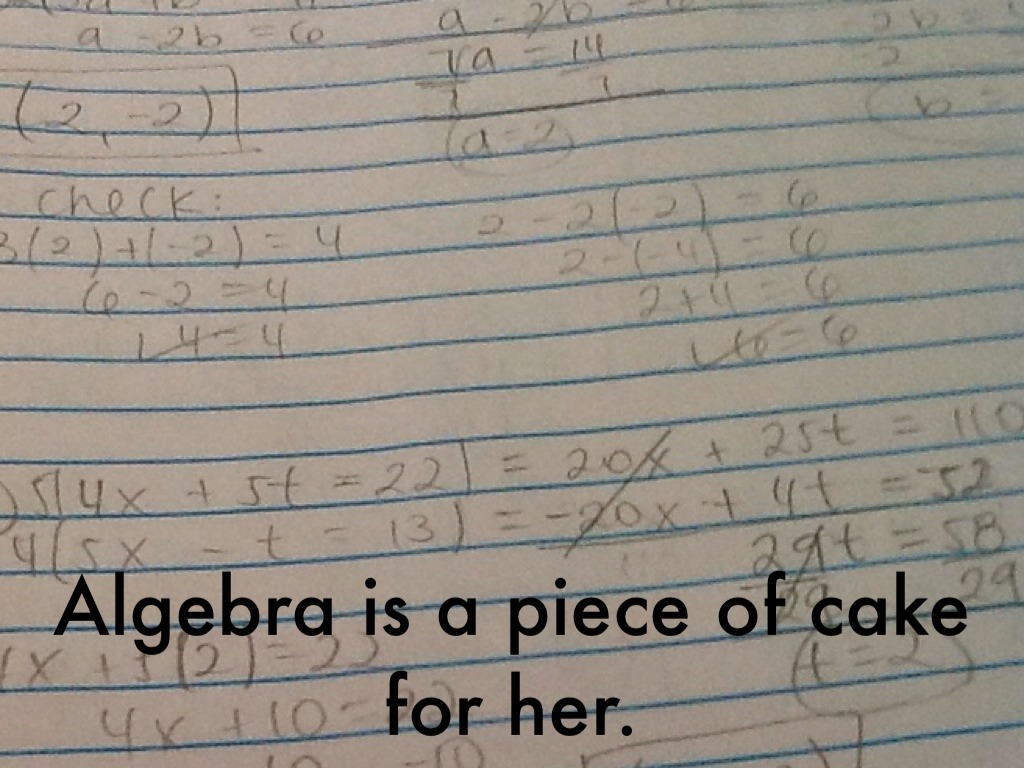 a - 2b = 6
a - 2b
7a = 14
7 7
(2, -2)
a = 2
b =
check:
3(2) + (-2) = 4
2 - 2(-2) = 6
6 - 2 = 4
2 - (-4) = 6
4 = 4
2 + 4 = 6
6 = 6
5(4x + 5t = 22) = 20x + 25t = 110
4(5x - t = 13) = -20x + 4t = -52
29t = 58
29 29
Algebra is a piece of cake
4x + 5(2) = 22
t = 2
for her.
4x + 10 =
-10